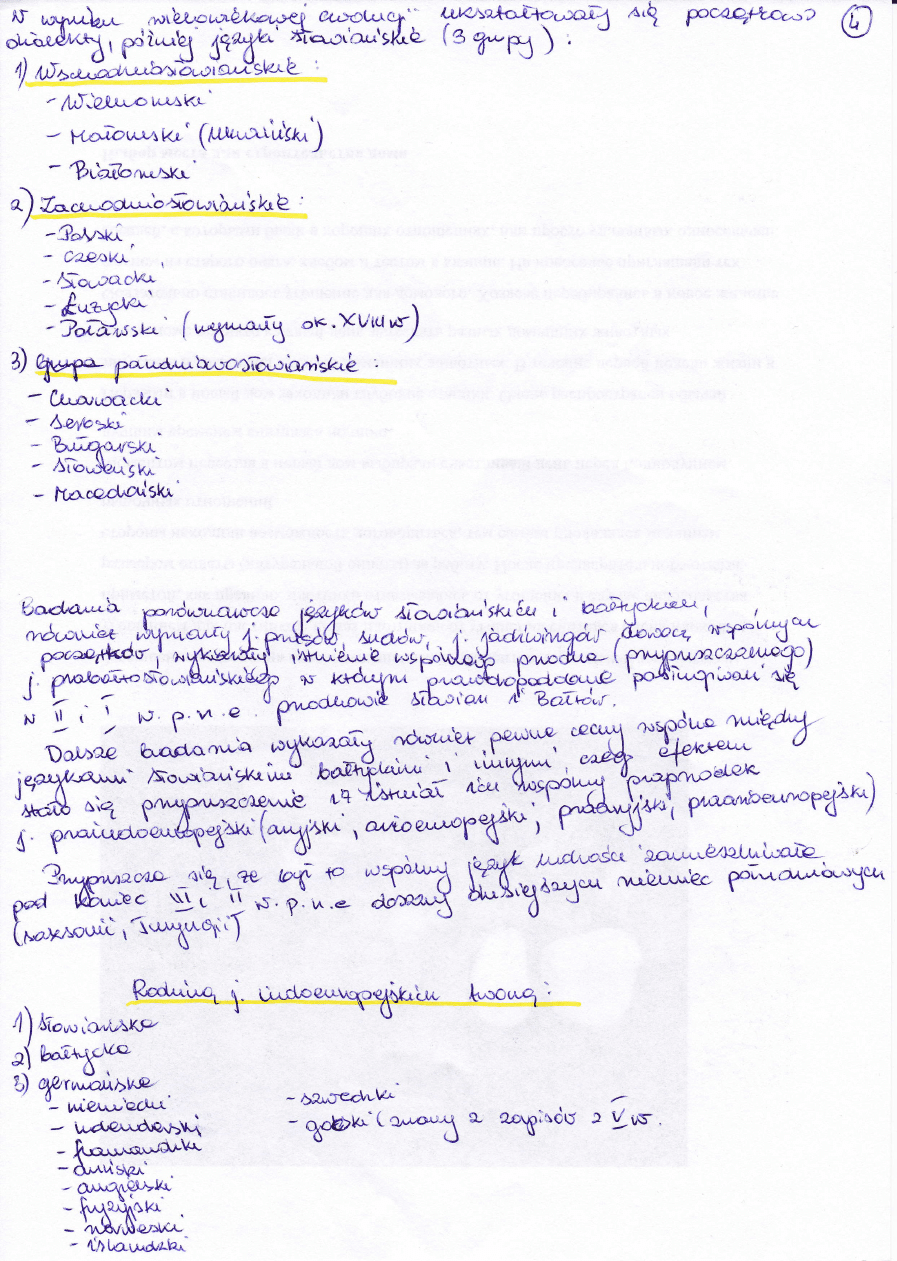 W wyniku wielowiekowej ewolucji ukształtowały się początkowo
dialekty, później języki słowiańskie (3 grupy) :
4
1) Wschodniosłowiańskie :
- Wielkoruski
- Małoruski (Ukraiński)
- Białoruski
2) Zachodniosłowiańskie :
- Polski
- Czeski
- Słowacki
- Łużycki
- Połabski (wymarły ok. XVIII w)
3) Grupa południowosłowiańskie :
- Chorwacki
- Serbski
- Bułgarski
- Słoweński
- Macedoński
Badania porównawcze języków słowiańskich i bałtyckich,
również wymarły j. prusów, j. jadźwingów dowodzą wspólnych
początków wykazały istnienie wspólnego przodka (przypuszczalnego)
j. prabałtosłowiańskiego w którym prawdopodobnie posługiwali się
w II i I w. p. n. e. przodkowie Słowian i Bałtów.
Dalsze badania wykazały również pewne cechy wspólne między
językami słowiańskimi bałtyckimi i innymi, czego efektem
stało się przypuszczenie iż istniał ich wspólny praprzodek
j. praindoeuropejski (aryjski, arioeuropejski, praaryjski, praarioeuropejski)
Przypuszcza się, że był to wspólny język ludności zamieszkiwała
pod koniec III i II w. p. n. e dorzeczy dzisiejszych niemiec południowych
(saksonii, Turyngii)
Rodzinę j. indoeuropejskich tworzą :
1) słowiańskie
2) bałtyckie
3) germańskie
- niemiecki
- holenderski
- flamandzki
- duński
- angielski
- fryzyjski
- norweski
- islandzki
- szwedzki
- gocki (znany z zapisów z V w.